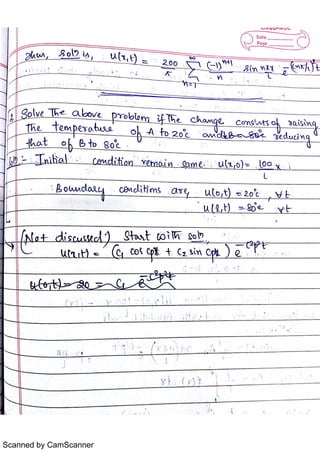 Date
Page
Thus, Solⁿ is, u(x,t) = 200/π ∞∑n=1 (-1)ⁿ⁺¹/n sin nπx/l e^-(cnπ/l)²t
Solve The above problem if The change consists of raising
The temperature of A to 20°c and reducing
that of B to 80°c.
Solⁿ:- Initial condition remain same. u(x,0) = 100/L x
Boundary conditions are, u(0,t) = 20°c, ∀t
u(l,t) = 80°c ∀t
(Not discussed) Start with solⁿ
u(x,t) = (C₁ cos cpx + C₂ sin cpx) e^-c²p²t
u(0,t) = 20 = C₁ e^-c²p²t
Scanned by CamScanner